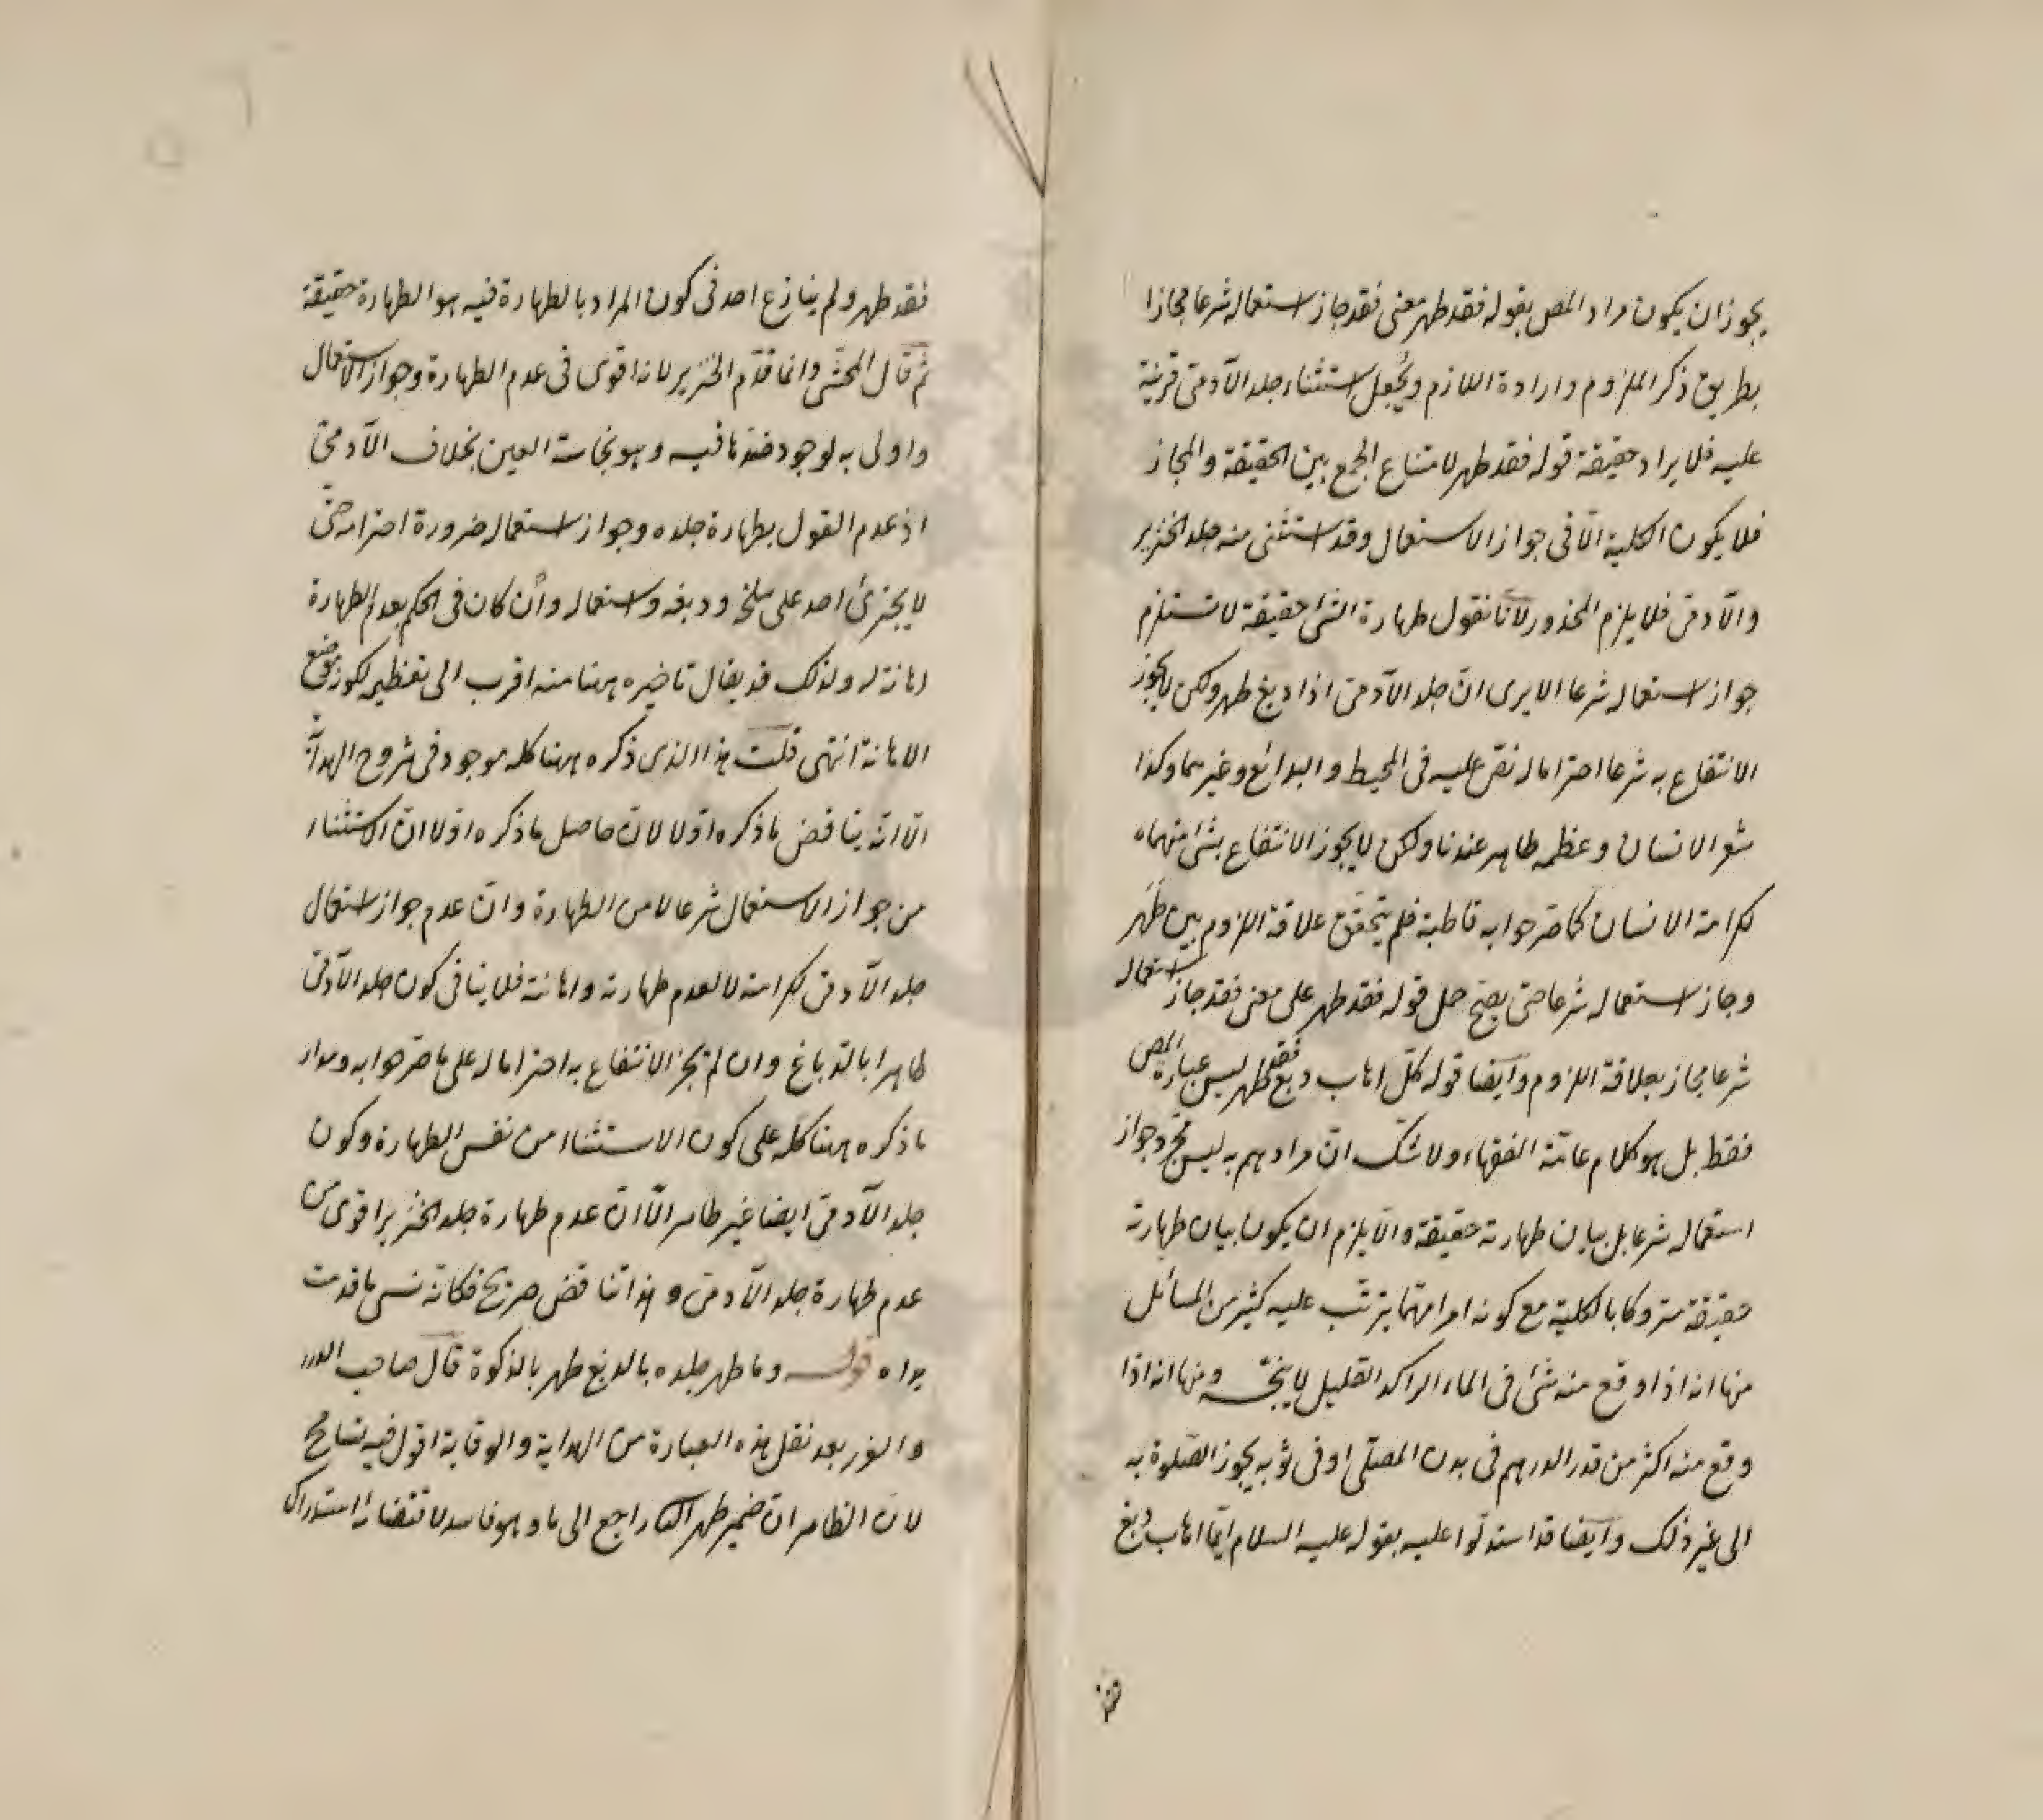 يجوز ان يكون مراد المص بقوله فقد طهر معنى فقد جاز استعماله شرعا مجازا
بطريق ذكر الملزوم وارادة اللازم ويُجعل استثناء جلد الآدمىّ قرينة
عليه فلا يراد حقيقة قوله فقد طهر لامتناع الجمع بين الحقيقة والمجاز
فلا يكون الكلية الّا فى جواز الاستعمال وقد استثنى منه جلد الخنزير
والآدمىّ فلا يلزم المحذور لانّا نقول طهارة الشئ حقيقة لا تستلزم
جواز استعماله شرعا الا يرى انّ جلد الآدمىّ اذا دبغ طهر ولكن لا يجوز
الانتفاع به شرعا احتراما له نصّ عليه فى المحيط والبدائع وغيرهما وكذا
شعر الانسان وعظمه طاهر عندنا ولكن لا يجوز الانتفاع بشئ منهما
لكرامة الانسان كما صرّحوا به قاطبة فلم يتحقق علاقة اللزوم بين طَهُر
وجاز استعماله شرعا حتى يصحّ حمل قوله فقد طهر على معنى فقد جاز استعماله
شرعا مجاز بعلاقة اللزوم وايضا قوله كلّ اهاب دبغ فقد طهر ليس عبارة المص
فقط بل هو كلام عامّة الفقهاء ولا شكّ انّ مرادهم به ليس مجرّد جواز
استعماله شرعا بل بيان طهارته حقيقة والّا يلزم ان يكون بيان طهارته
حقيقة متروكا بالكلية مع كونه امرا مهمّا يترتّب عليه كثير من المسائل
منها انه اذا وقع منه شئ فى الماء الراكد القليل لا ينجّسه ومنها انه اذا
وقع منه اكثر من قدر الدرهم فى بدن المصلّى او فى ثوبه يجوز الصّلوة به
الى غير ذلك وايضا قد استدلّوا عليه بقوله عليه السلام ايّما اهاب دبغ
فقد طهر ولم ينازع احد فى كون المراد بالطهارة فيه هو الطهارة حقيقة
ثم قال المحشّى وانما قدّم الخنزير لانه اقوى فى عدم الطهارة وجواز الاستعمال
واولى به لوجود ضدّهما فيه وهو نجاسة العين بخلاف الآدمىّ
اذ عدم القول بطهارة جلده وجواز استعماله ضرورة احترامه حتّى
لا يجترئ احد على سلخه ودبغه واستعماله وان كان فى الحكم بعدم الطهارة
اهانة له ولذلك قد يقال تاخيره ههنا منه اقرب الى تعظيمه لكونه موضع
الاهانة انتهى قلت هذا الذى ذكره ههنا كله موجود فى شروح الهداية
الّا انّه يناقض ما ذكره اوّلا لانّ حاصل ما ذكره اوّلا انّ الاستثناء
من جواز الاستعمال شرعا لا من الطهارة وانّ عدم جواز استعمال
جلد الآدمىّ لكرامته لا لعدم طهارته واهانته فلا ينافى كون جلد الآدمىّ
طاهرا بالدّباغ وان لم يجز الانتفاع به احتراما له على ما صرّحوا به ومدار
ما ذكره ههنا كله على كون الاستثناء من نفس الطهارة وكون
جلد الآدمىّ ايضا غير طاهر الّا انّ عدم طهارة جلد الخنزير اقوى من
عدم طهارة جلد الآدمىّ وهذا تناقض صريح فكانّه نسى ما قدمت
يداه قوله وما طهر جلده بالدبغ طهر بالذكوة قال صاحب الدرر
والغرر بعد نقل هذه العبارة من الهداية والوقاية اقول فيه تسامح
لان الظاهر انّ ضمير طهر الثانى راجع الى ما وهو فاسد لاقتضائه استدراك